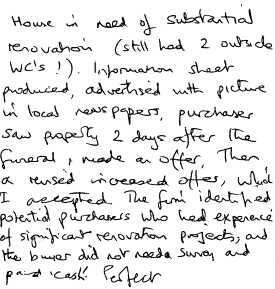 House in need of substantial
renovation (still had 2 outside
WC's!). Information sheet
produced, advertised with picture
in local newspapers, purchaser
saw property 2 days after the
funeral, made an offer, Then
a revised increased offer, which
I accepted. The firm identified
potential purchasers who had experience
of significant renovation projects, and
the buyer did not need a survey and
paid 'cash'. Perfect